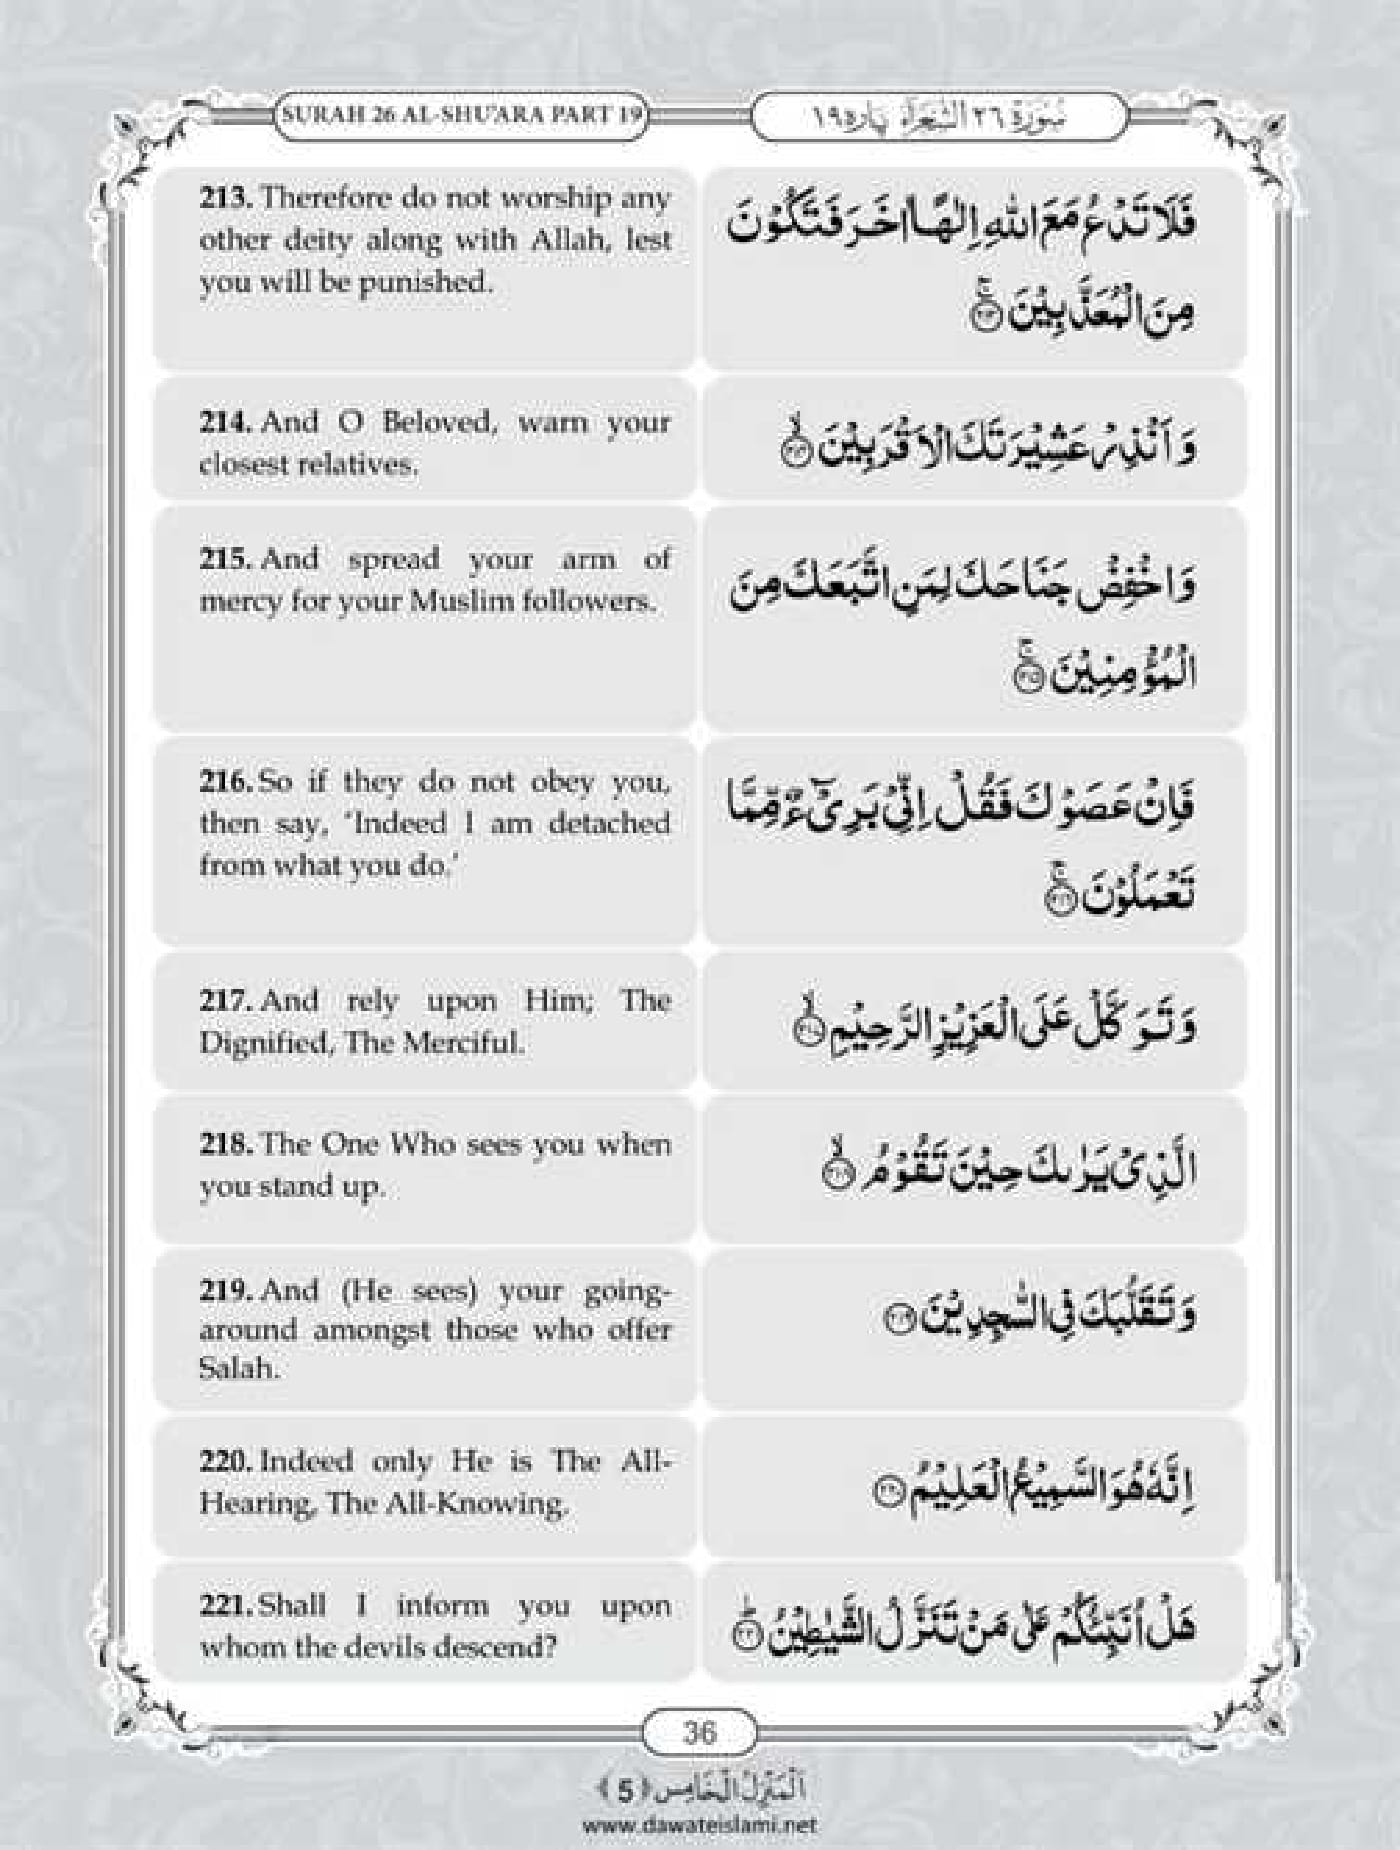 SURAH 26 AL-SHU'ARA PART 19
سُوْرَةُ ٢٦ الشُّعَرَآءِ پارہ ١٩
213. Therefore do not worship any
other deity along with Allah, lest
you will be punished.
فَلَا تَدْعُ مَعَ اللّٰهِ اِلٰهًا اٰخَرَ فَتَكُوْنَ
مِنَ الْمُعَذَّبِيْنَ ۚ﴿٢١٣﴾
214. And O Beloved, warn your
closest relatives.
وَ اَنْذِرْ عَشِيْرَتَكَ الْاَقْرَبِيْنَ ۙ﴿٢١٤﴾
215. And spread your arm of
mercy for your Muslim followers.
وَاخْفِضْ جَنَاحَكَ لِمَنِ اتَّبَعَكَ مِنَ
الْمُؤْمِنِيْنَ ۚ﴿٢١٥﴾
216. So if they do not obey you,
then say, ‘Indeed I am detached
from what you do.’
فَاِنْ عَصَوْكَ فَقُلْ اِنِّيْ بَرِيْٓءٌ مِّمَّا
تَعْمَلُوْنَ ۚ﴿٢١٦﴾
217. And rely upon Him; The
Dignified, The Merciful.
وَ تَوَكَّلْ عَلَى الْعَزِيْزِ الرَّحِيْمِ ۙ﴿٢١٧﴾
218. The One Who sees you when
you stand up.
الَّذِيْ يَرٰىكَ حِيْنَ تَقُوْمُ ۙ﴿٢١٨﴾
219. And (He sees) your going-
around amongst those who offer
Salah.
وَ تَقَلُّبَكَ فِي السّٰجِدِيْنَ ﴿٢١٩﴾
220. Indeed only He is The All-
Hearing, The All-Knowing.
اِنَّهٗ هُوَ السَّمِيْعُ الْعَلِيْمُ ﴿٢٢٠﴾
221. Shall I inform you upon
whom the devils descend?
هَلْ اُنَبِّئُكُمْ عَلٰى مَنْ تَنَزَّلُ الشَّيٰطِيْنُ ؕ﴿٢٢١﴾
36
اَلْمَنْزِلُ الْخَامِس ﴿5﴾
www.dawateislami.net